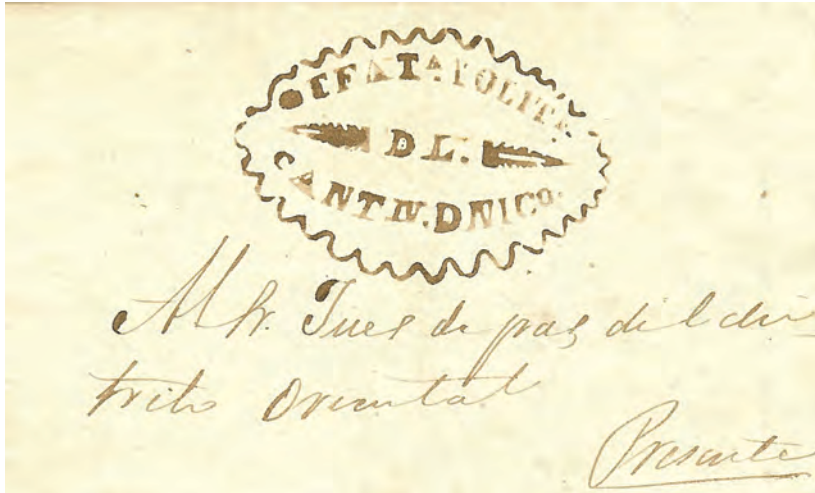 GEFATA. POLITA.
DL.
CANTN. D NICO.
Al Sr. Jues de pas del dis
trito Oriental
Presente